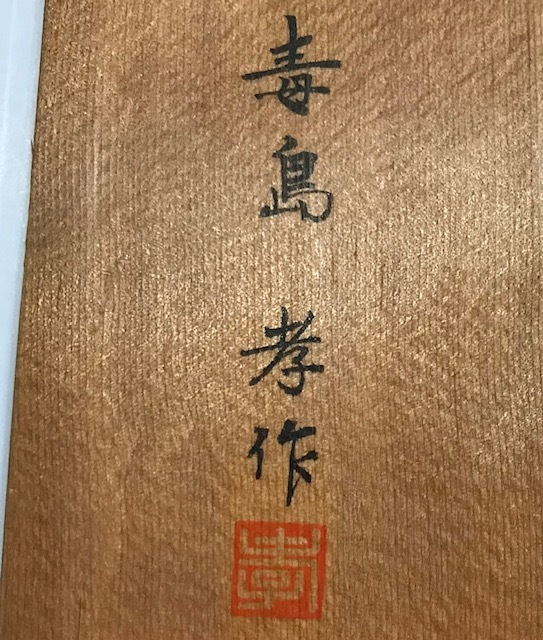 毒島 孝作